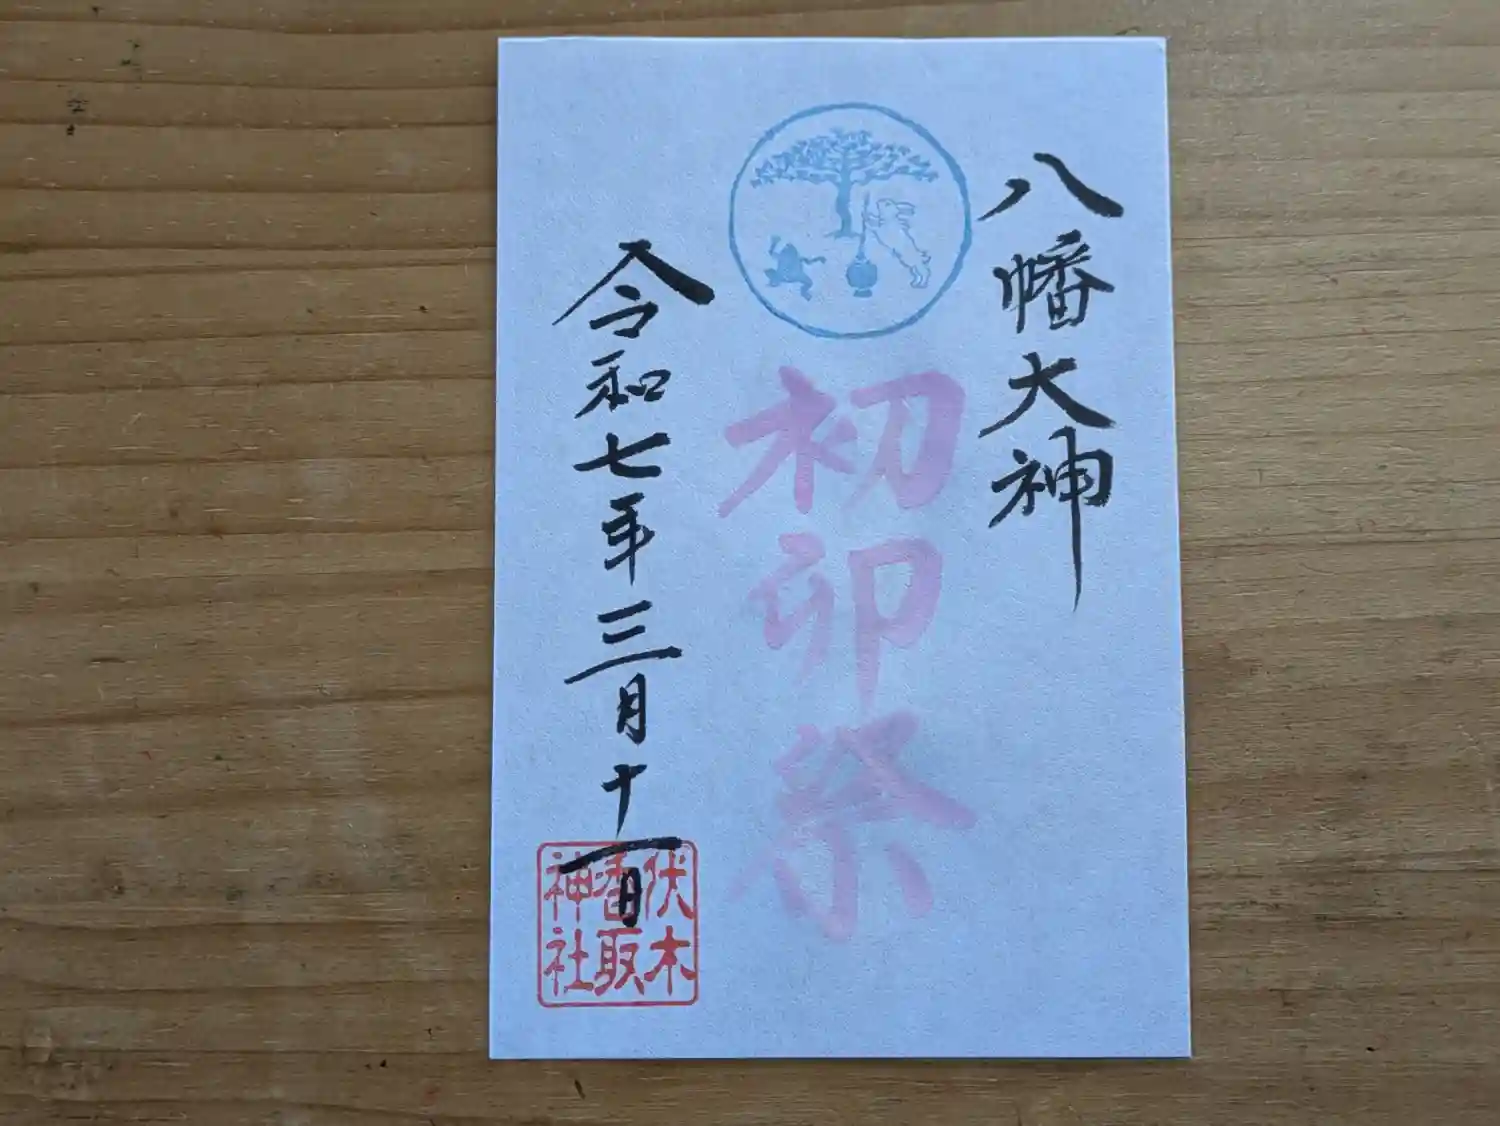 八幡大神
初卯祭
令和七年三月十一日
伏木
香取
神社